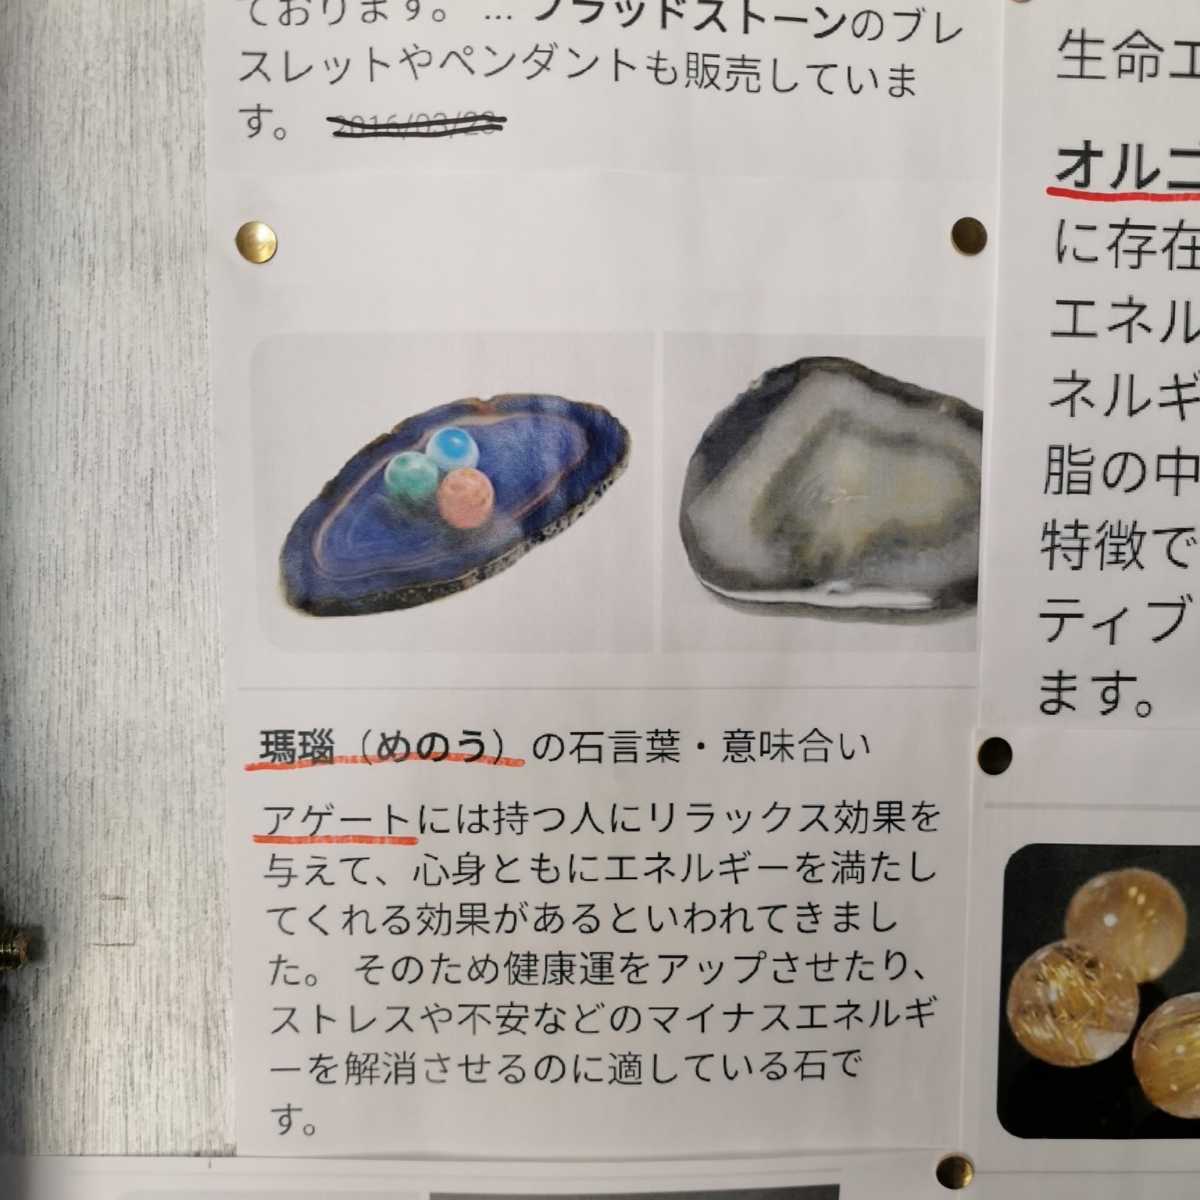 ております。 … ブラッドストーンのブレ
スレットやペンダントも販売していま
す。 2016/03/23
瑪瑙（めのう）の石言葉・意味合い
アゲートには持つ人にリラックス効果を
与えて、心身ともにエネルギーを満たし
てくれる効果があるといわれてきまし
た。 そのため健康運をアップさせたり、
ストレスや不安などのマイナスエネルギ
ーを解消させるのに適している石で
す。
生命エ
オルゴ
に存在
エネル
ネルギ
脂の中
特徴で
ティブ
ます。